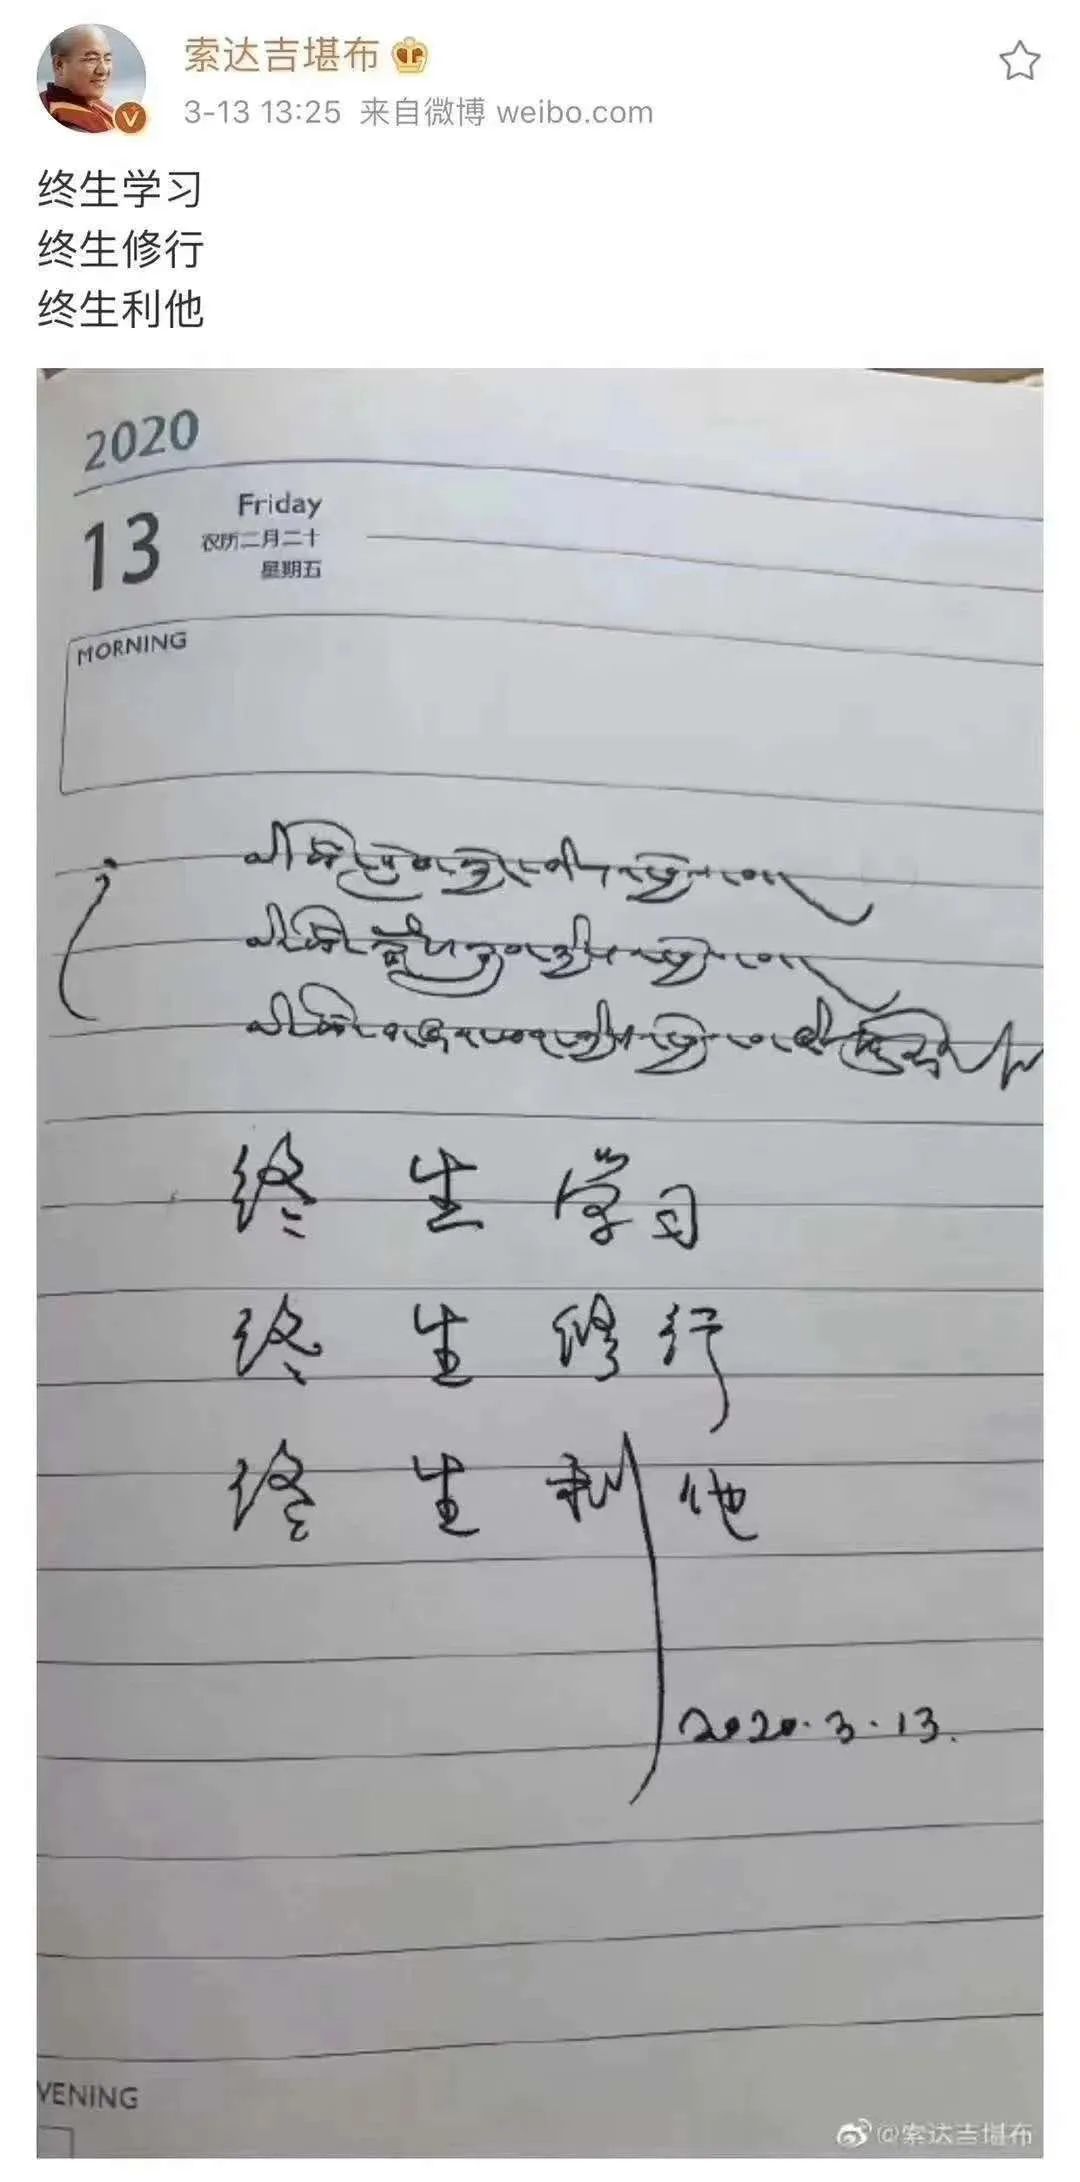 索达吉堪布
3-13 13:25 来自微博 weibo.com
终生学习
终生修行
终生利他
2020
13
Friday
农历二月二十
星期五
MORNING
终生学习
终生修行
终生利他
2020.3.13.
VENING
@索达吉堪布